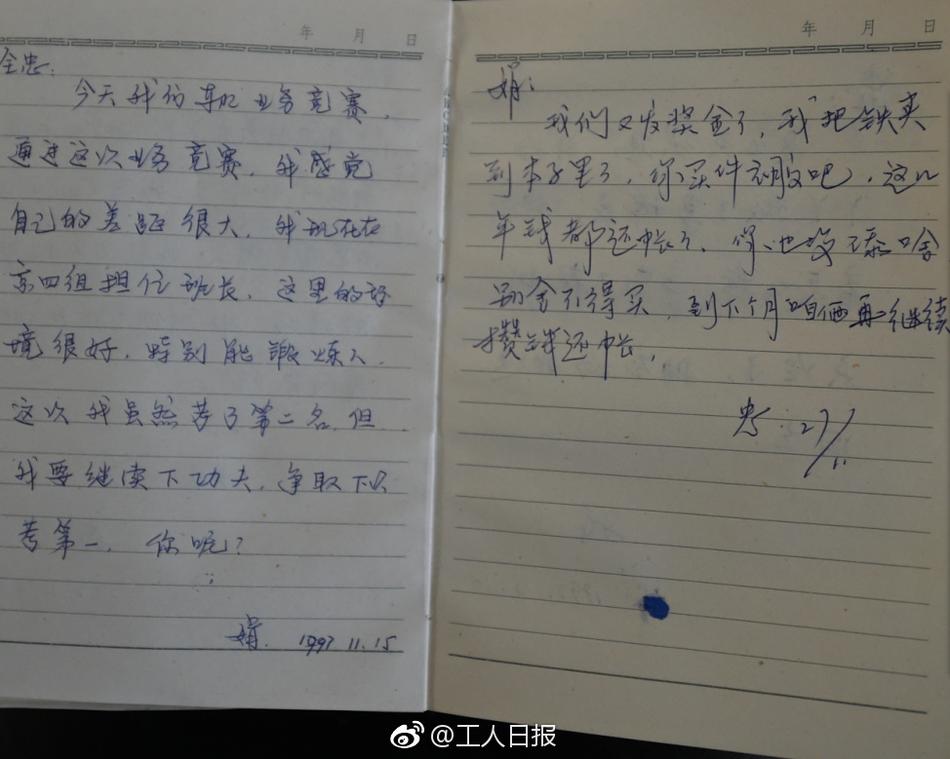 年 月 日
全忠:
今天我们车队业务竞赛,
通过这次业务竞赛,我感觉
自己的差距很大,我现在在
京四组担任班长,这里的环
境很好,特别能锻炼人,
这次我虽然考了第二名,但
我要继续下功夫,争取下次
考第一,你呢?
娟. 1997 11.15
年 月 日
娟:
我们又发奖金了,我把钱夹
到本子里了,你买件衣服吧,这几
年钱都还帐了,你也没添啥
别舍不得买,到下个月咱俩再继续
攒钱还帐,
忠. 27/11
@工人日报